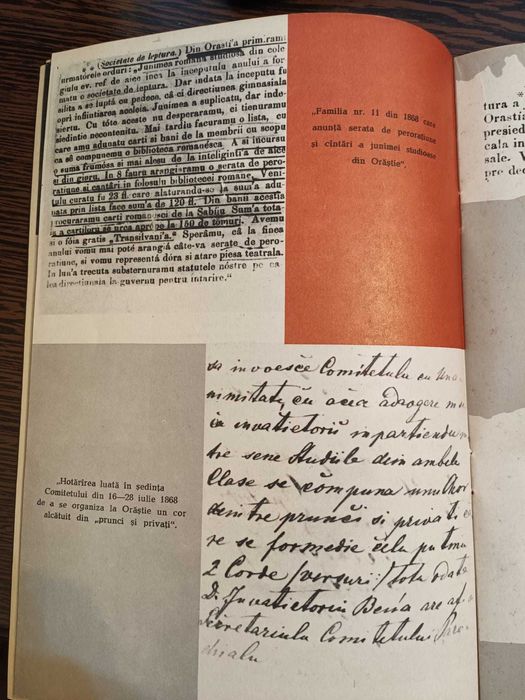 * * (Societate de leptura.) Din Orasti'a prim.ram
urmatorele orduri: „Junimea romana studiosa din cole
giulu ev. ref de aice inca la inceputulu anului a for
matu o societate de leptura. Dar indata la inceputu fu
silita a se luptá cu pedece, că-ci directiunea gimnasiala
opri infiintiarea acelei'a. Junimea a suplicatu, dar inde-
siertu. Cu tóte aceste nu desperaramu, ci tienuramu
siedintie necontenitu. Mai tardiu facuramu o lista, cu
care amu adunatu carti si bani de la membrii cu scopu
ca sĕ compunemu o biblioteca romanésca. A si incursu
o suma frumósa si mai alesu de la inteligintia de aice
si din giuru. In 8 fauru arangiaramu o serata de pero-
ratiune si cantări in folosulu bibliotecei romane. Veni-
tulu curatu fu 23 fl. care alaturandu-se la sum'a adu-
nata prin lista face sum'a de 120 fl. Din banii acesti'a
procuraramu carti romanesci de la Sabiiu Sum'a tota-
la a cartiloru se urca aprópe la 150 de tómuri. Avemu
si o fóia gratis „Transilvani'a." Sperămu, că la finea
anului vomu mai poté arangiá câte-va serate de pero-
ratiune, si vomu representá dóra si atare piesa teatrala.
In lun'a trecuta substernuramu statutele nóstre pe ca
lea directiunei la guvernu pentru intarire."
„Familia nr. 11 din 1868 care
anunță serata de perorațiune
și cîntări a junimei studioase
din Orăștie".
„Hotărirea luată in ședința
Comitetului din 16—28 iulie 1868
de a se organiza la Orăștie un cor
alcătuit din „prunci și privați".
va invoesce Comitetului cu una
nimitate, cu acea adaogere
ca invatietorii impartiendu
tre sene Studiile dim ambele
Clase se compuna unu Chor
dintre prunci si privati, ca
re se formedie celu putinu
2 Corde /versuri:/ totu odata
D. Invatietoriu Ben'a are a fi
Secretariulu Comitetului Paro
chialu
tura a
Orastia
presied
cala in
sale. V
pre dec